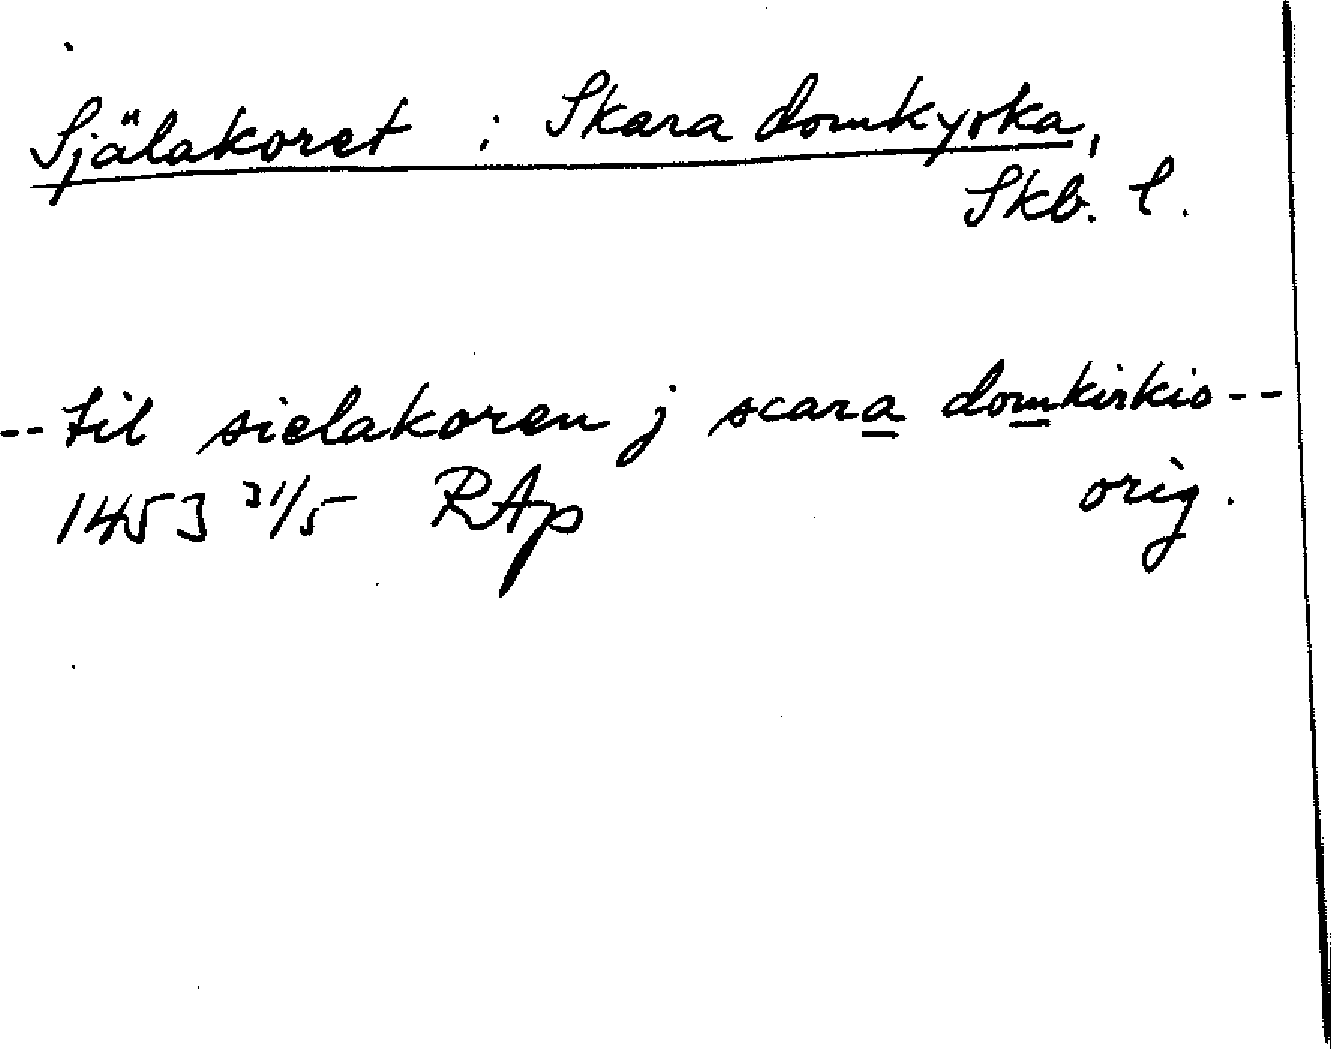 Själakoret i Skara domkyrka,
Skb. l.
-- til sielakoren j scara domkirkio --
1453 21/5 RAp orig.